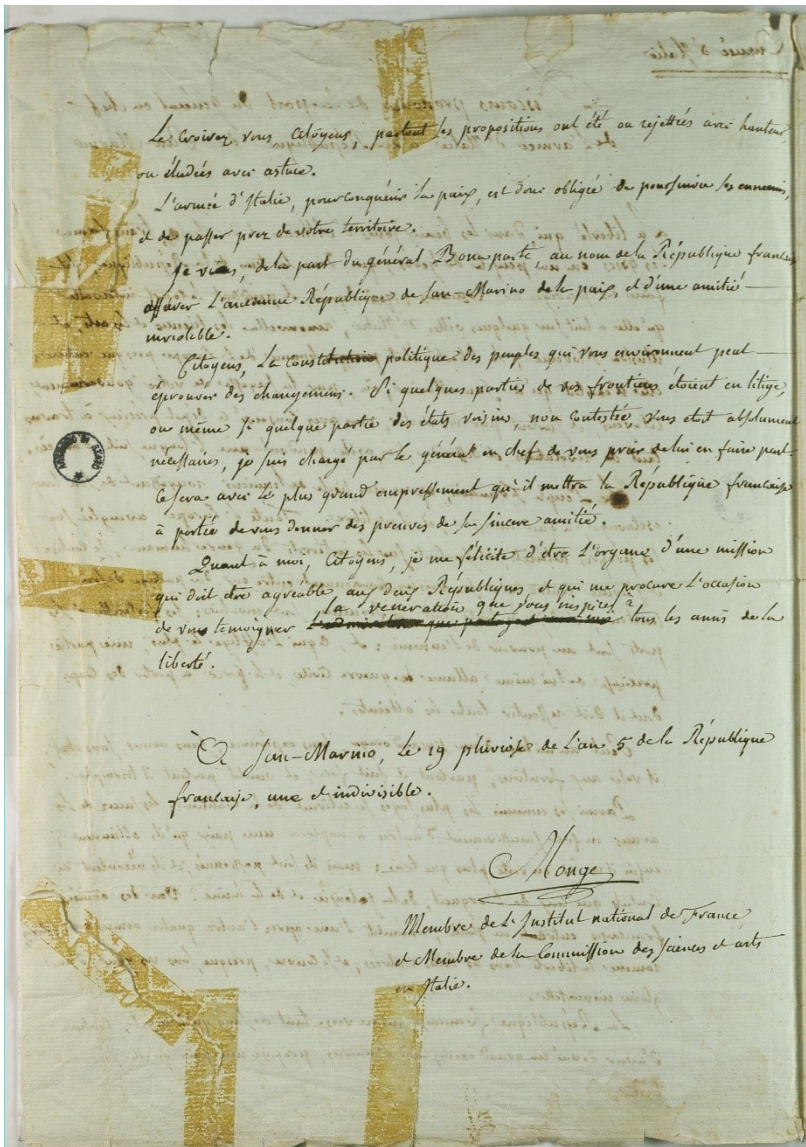 Le croirez vous citoyens, partout ses propositions ont été ou rejettées avec hauteur
ou éludées avec astuce.
L'armée d'Italie, pour conquérir la paix, est donc obligée de poursuivre ses ennemis,
et de passer prez de votre territoire.
Je viens, de la part du général Bonaparte, au nom de la République française
assurer l'ancienne République de San-Marino de la paix, et d'une amitié
inviolable.
Citoyens, la constitution politique des peuples qui vous environnent peut
éprouver des changemens. Si quelques parties de vos frontières étoient en litige,
ou même si quelque partie des états voisins, non contestée vous étoit absolument
nécessaires, je suis chargé par le général en chef de vous prier de lui en faire part.
Ce sera avec le plus grand empressement qu'il mettra la République française
à portée de vous donner des preuves de sa sincere amitié.
Quant à moi, Citoyens, je me félicite d'être l'organe d'une mission
qui doit etre agréable aux deux Républiques, et qui me procure l'occasion
la veneration que vous inspirez à
de vous temoigner tous les amis de la
liberté.
À San-Marino, le 19 pluviose de l'an 5 de la République
francaise, une et indivisible.
Monge
Membre de l'Institut national de France
et Membre de la Commission des sciences et arts
en Italie.